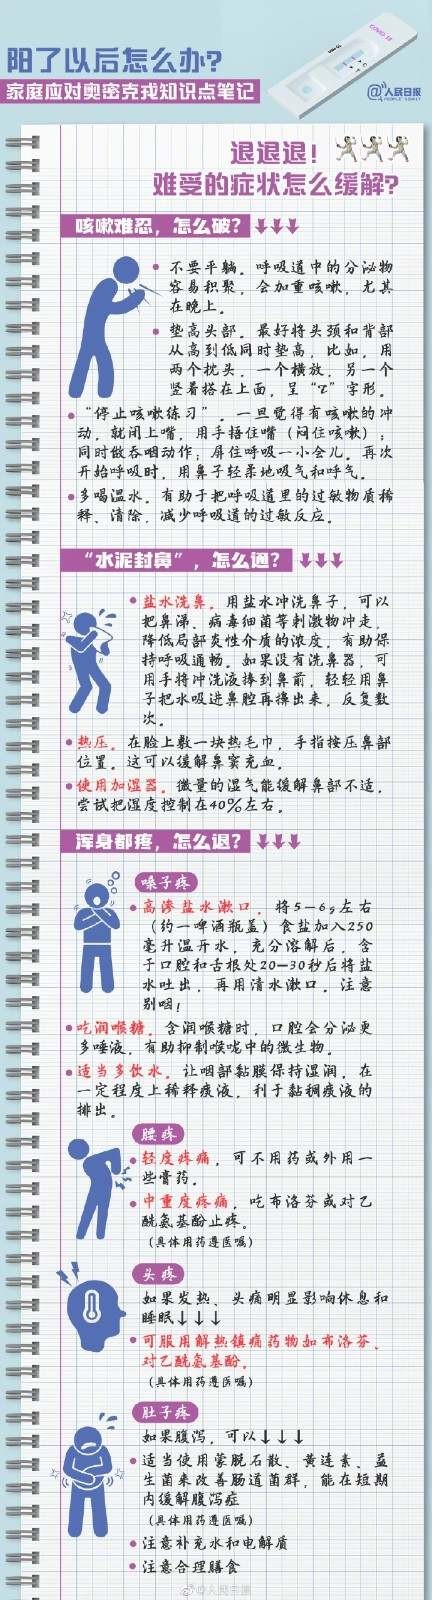 阳了以后怎么办?
家庭应对奥密克戎知识点笔记
COVID 19
@人民日报
PEOPLE'S DAILY
退退退!
难受的症状怎么缓解?
咳嗽难忍,怎么破?
不要平躺。呼吸道中的分泌物
容易积聚,会加重咳嗽,尤其
在晚上。
垫高头部。最好将头颈和背部
从高到低同时垫高,比如,用
两个枕头,一个横放,另一个
竖着搭在上面,呈“Z”字形。
“停止咳嗽练习”。一旦觉得有咳嗽的冲
动,就闭上嘴,用手捂住嘴(闷住咳嗽);
同时做吞咽动作;屏住呼吸一小会儿。再次
开始呼吸时,用鼻子轻柔地吸气和呼气。
多喝温水。有助于把呼吸道里的过敏物质稀
释、清除,减少呼吸道的过敏反应。
“水泥封鼻”,怎么通?
盐水洗鼻。用盐水冲洗鼻子,可以
把鼻涕、病毒细菌等刺激物冲走,
降低局部炎性介质的浓度,有助保
持呼吸通畅。如果没有洗鼻器,可
用手将冲洗液捧到鼻前,轻轻用鼻
子把水吸进鼻腔再擤出来,反复数
次。
热压。在脸上敷一块热毛巾,手指按压鼻部
位置。这可以缓解鼻窦充血。
使用加湿器。微量的湿气能缓解鼻部不适,
尝试把湿度控制在40%左右。
浑身都疼,怎么退?
嗓子疼
高渗盐水漱口。将5—6g左右
(约一啤酒瓶盖)食盐加入250
毫升温开水,充分溶解后,含
于口腔和舌根处20—30秒后将盐
水吐出,再用清水漱口。注意
别咽!
吃润喉糖。含润喉糖时,口腔会分泌更
多唾液,有助抑制喉咙中的微生物。
适当多饮水。让咽部黏膜保持湿润,在
一定程度上稀释痰液,利于黏稠痰液的
排出。
腰疼
轻度疼痛,可不用药或外用一
些膏药。
中重度疼痛,吃布洛芬或对乙
酰氨基酚止疼。
(具体用药遵医嘱)
头疼
如果发热、头痛明显影响休息和
睡眠↓↓↓
可服用解热镇痛药物如布洛芬、
对乙酰氨基酚。
(具体用药遵医嘱)
肚子疼
如果腹泻,可以↓↓↓
适当使用蒙脱石散、黄连素、益
生菌来改善肠道菌群,能在短期
内缓解腹泻症
(具体用药遵医嘱)
注意补充水和电解质
注意合理膳食
@人民日报